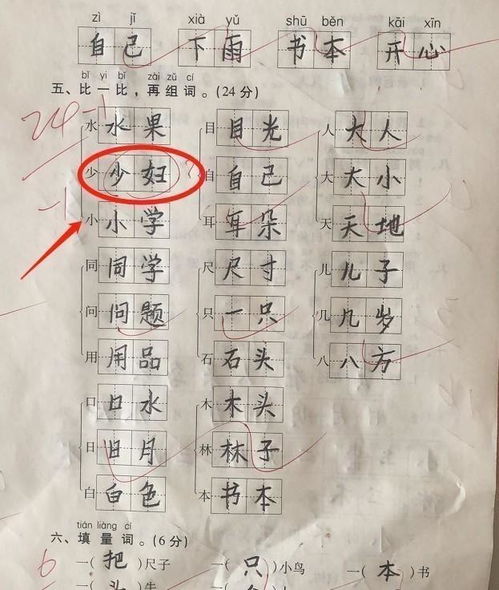 zì jǐ xià yǔ shū běn kāi xīn
自己 下雨 书本 开心
bǐ yi bǐ zài zǔ cí
五、比一比,再组词。(24分)
24 -1
水 水果 目 目光 人 大人
少 少妇 ? 自 自己 大 大小
-1
小 小学 耳 耳朵 天 天地
同 同学 尺 尺寸 儿 儿子
问 问题 只 一只 几 几岁
用 用品 石 石头 八 八方
口 口水 木 木头
日 日月 林 林子
白 白色 本 书本
tián liàng cí
六、填量词。(6分)
6
一(把)尺子 一(只)小鸟 一(本)书
一(头)牛